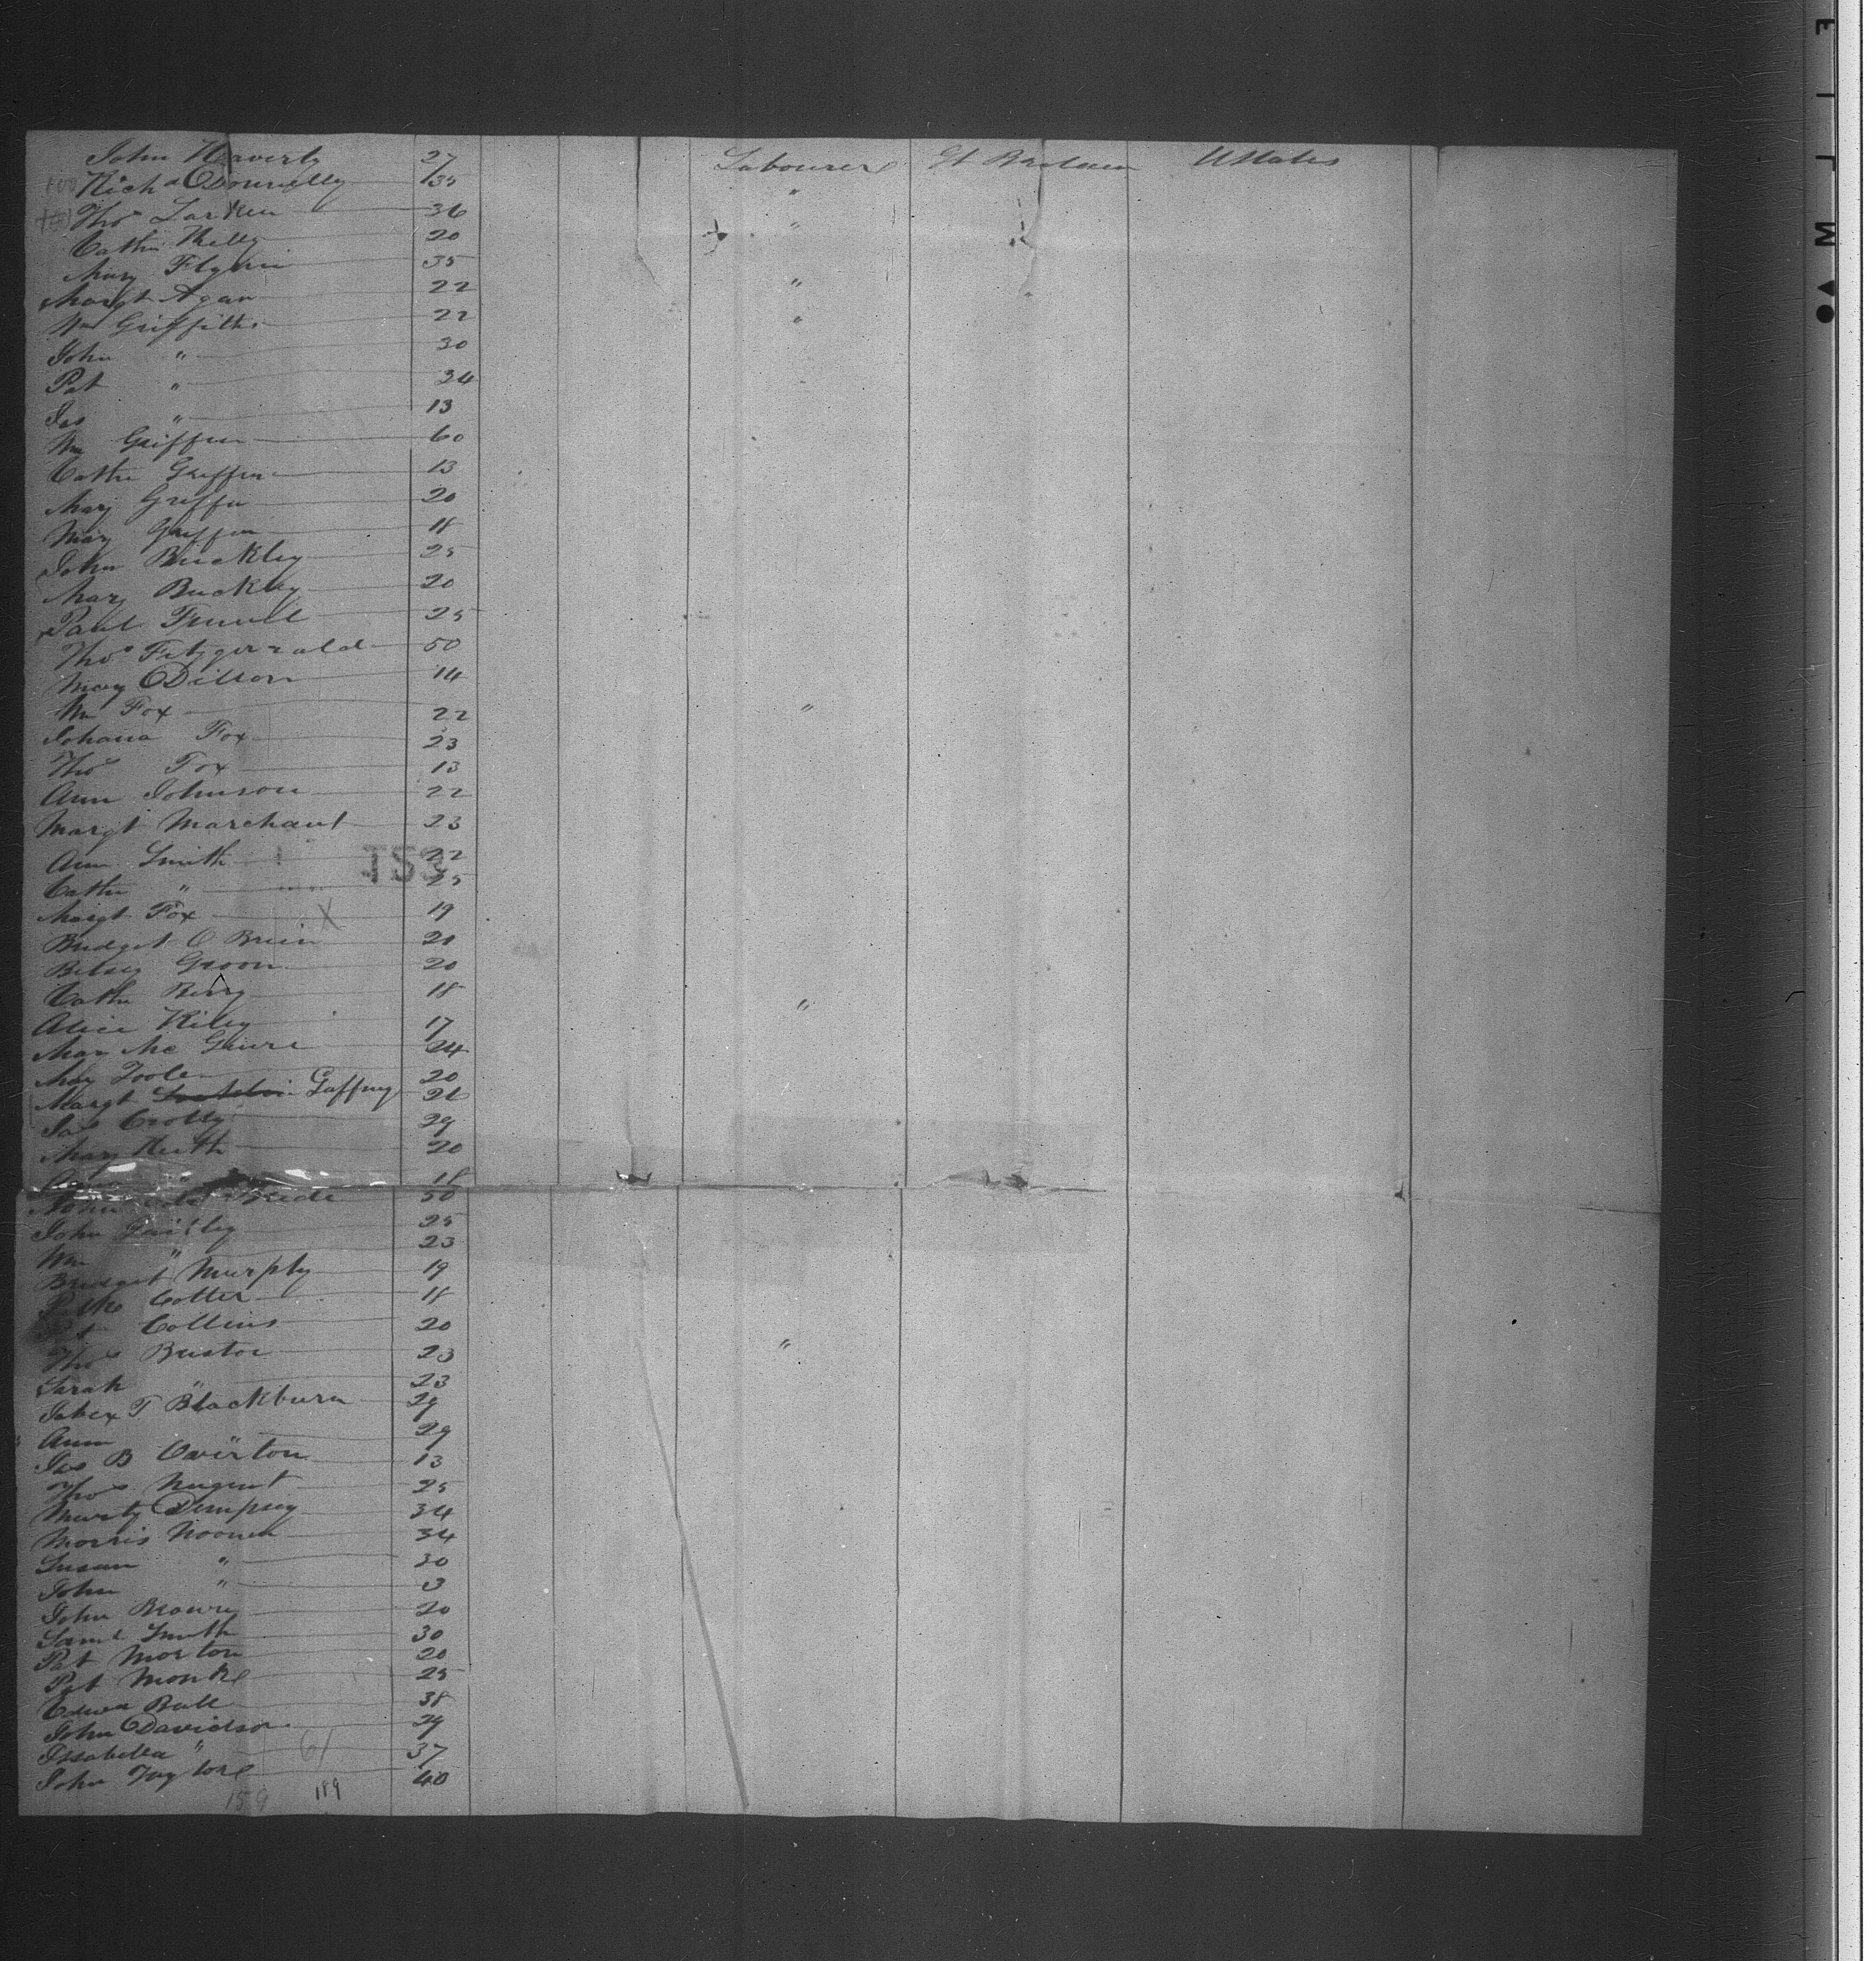 John Haverty 27 Labourers Gt Britain U States
100 Richd O'Donnelly 35 "
101 Thos Larken 36 "
Cathn Kelly 20
Mary Flynn 35 "
Margt Agan 22 "
Wm Griffiths 22
John " 30
Pat " 34
Jas " 13
Wm Griffin 60
Cathe Griffin 13
Mary Griffin 20
Mary Griffin 18
John Buckley 25
Mary Buckley 20
Paul 25
Thos Fitzgerrald 50
Mary Dillon 14
Wm Fox 22 "
Johana Fox 23
Thos Fox 13
Ann Johnson 22
Margt Marchant 23
Ann Smith 22
Cathe " 25
Margt Fox X 19
Bridget O Brien 21
Betsey Groon 20
Cathe Berry 18 "
Alice Kiley 17
Mary Mc Guire 24
May Toole 20
Margt Gaffney
Jas Crolly 29
Mary Keith 20
Ann " 18
John Mc Bride 50
John 25
Wm " 23
Bridget Murphy 19
Cotter 18
Pat Collins 20
Thos Bristoe 23 "
Sarah " 23
Jabez T Blackburn 29
Ann " 29
Jas B Overton 13
Thos Nugent 25
Murty Dempsey 34
Morris Noonen 34
Susan " 30
John " 3
John Brown 20
Saml Smith 30
Pat Morton 20
Pat Monks 25
Edwd Ball 38
John Davidson 29
Issabella " 37
John Taylor 40
61
159 189